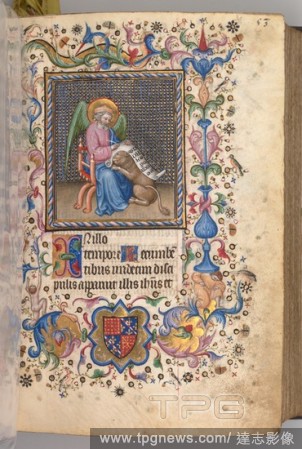 IN illo
tempore Recumbe
tibus undecim disci
pulis apparuit illis ihs et
TPG
www.tpgnews.com / 達志影像